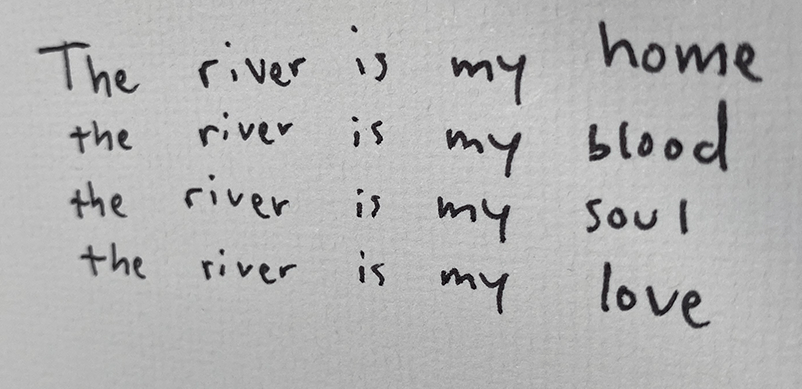 The river is my home
the river is my blood
the river is my soul
the river is my love